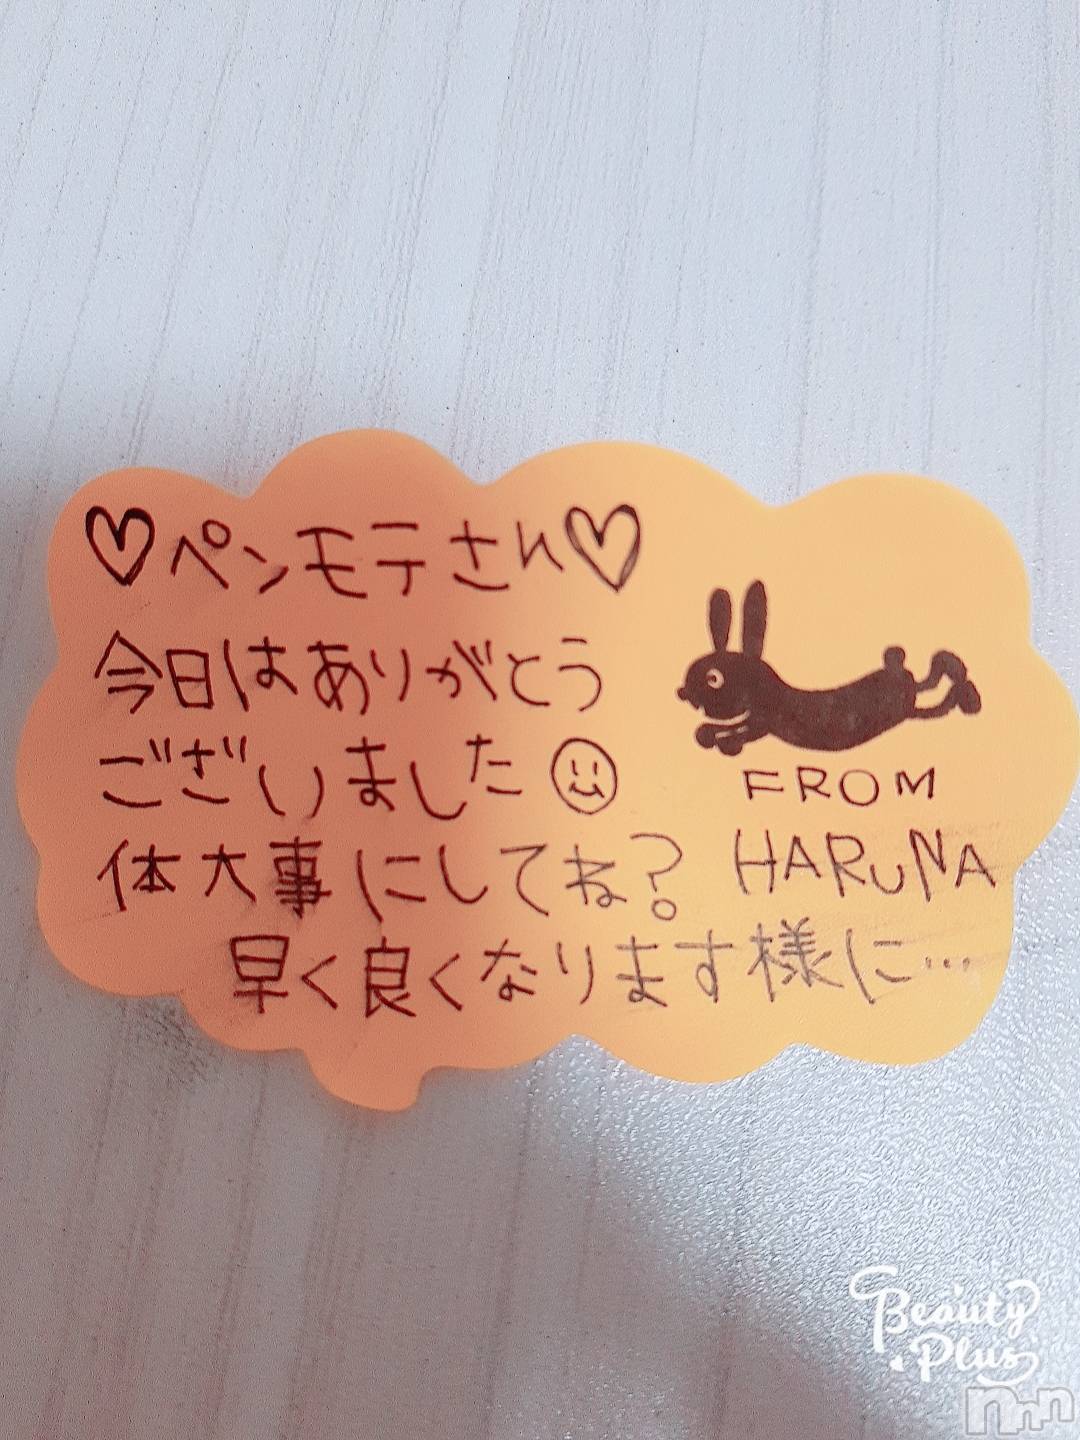 ♡ペンモテさん♡
今日はありがとう
ございました
体大事にしてね?
早く良くなります様に…
FROM
HARUNA
Beauty
Plus
nnn